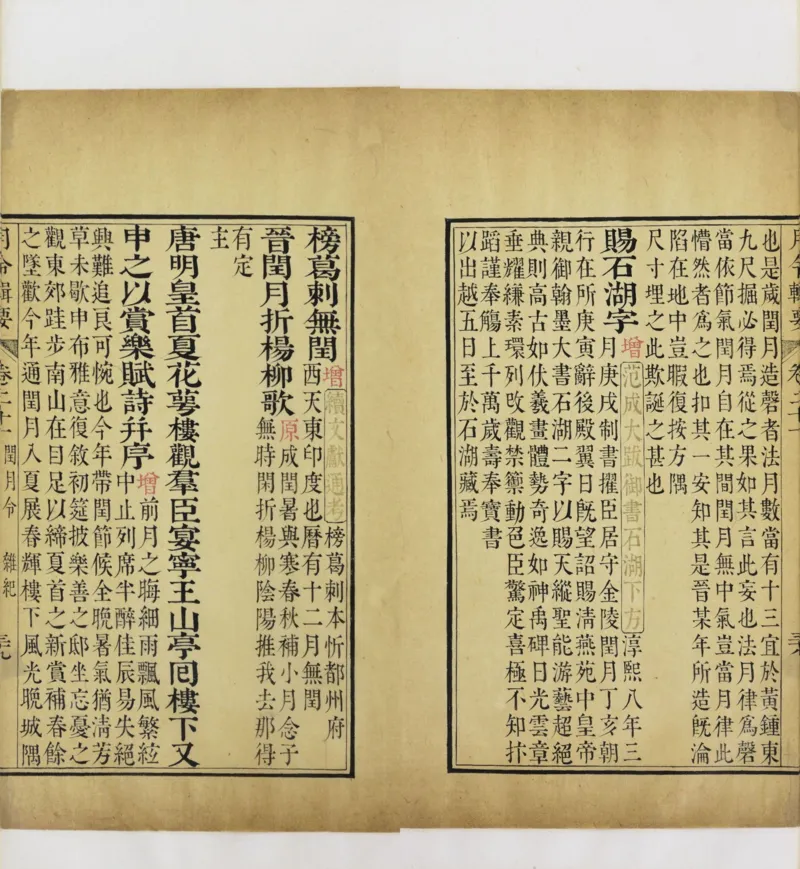 也是歲閏月造磬者法月數當有十三宜於黃鍾東
九尺掘必得焉從之果如其言此妄也法月律爲磬
當依節氣閏月自在其間閏月無中氣豈當月律此
懵然者爲之也扣其一安知其是晉某年所造旣淪
陷在地中豈暇復按方隅
尺寸埋之此欺誕之甚也
賜石湖字 增 范成大跋御書石湖下方 淳熙八年三
月庚戌制書擢臣居守金陵閏月丁亥朝
行在所庚寅辭後殿翼日旣望詔賜清燕苑中皇帝
親御翰墨大書石湖二字以賜天縱聖能游藝超絕
典則高古如伏羲畫體勢奇逸如神禹碑日光雲章
垂耀縑素環列改觀禁籞動色臣驚定喜極不知抃
蹈謹奉觴上千萬歲壽奉寶書
以出越五日至於石湖藏焉
榜葛剌無閏 增 續文獻通考 榜葛剌本忻都州府
西天東印度也曆有十二月無閏
晉閏月折楊柳歌 原 成閏暑與寒春秋補小月念子
無時閑折楊柳陰陽推我去那得
有定
主
唐明皇首夏花萼樓觀羣臣宴寧王山亭回樓下又
申之以賞樂賦詩并序 增 前月之晦細雨飄風繁絃
中止列席半醉佳辰易失絕
興難追良可惋也今年帶閏節候全晚暑氣猶清芳
草未歇申布雅意復敘初筵披樂善之邸坐忘憂之
觀東郊跬步南山在目足以締夏首之新賞補春餘
之墜歡今年通閏月入夏展春輝樓下風光晚城隅
月令輯要 卷二十一 閏月令 雜紀